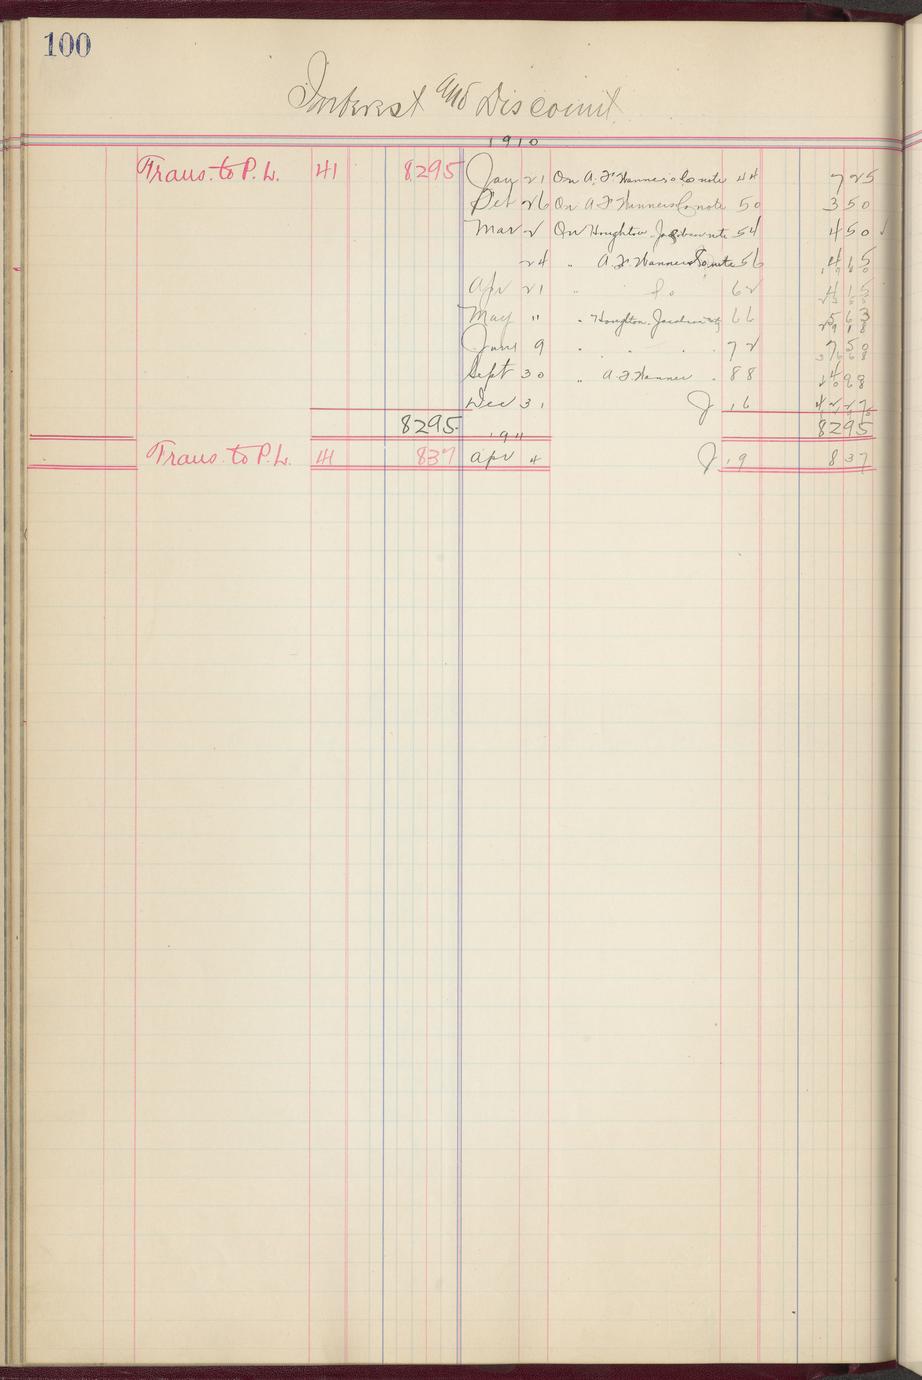 100
Interest and Discount
1910
Trans. to P. L. 41 8295 Jan 21 On A. F. Hanners Co note 44 725
Oct 26 On A F Hanners Co note 50 350
Mar 2 On Houghton Jacobson note 54 450
24 " A. F. Hanners Co note 56 415
Apr 21 " Do 62 415
May " " Houghton Jacobson 66 563
June 9 " " " 72 750
Sept 30 " A. F. Hanner " 88 498
Dec 31 J 16 4227
8295 8295
1911
Trans. to P. L. 41 837 Apr 4 J 19 837